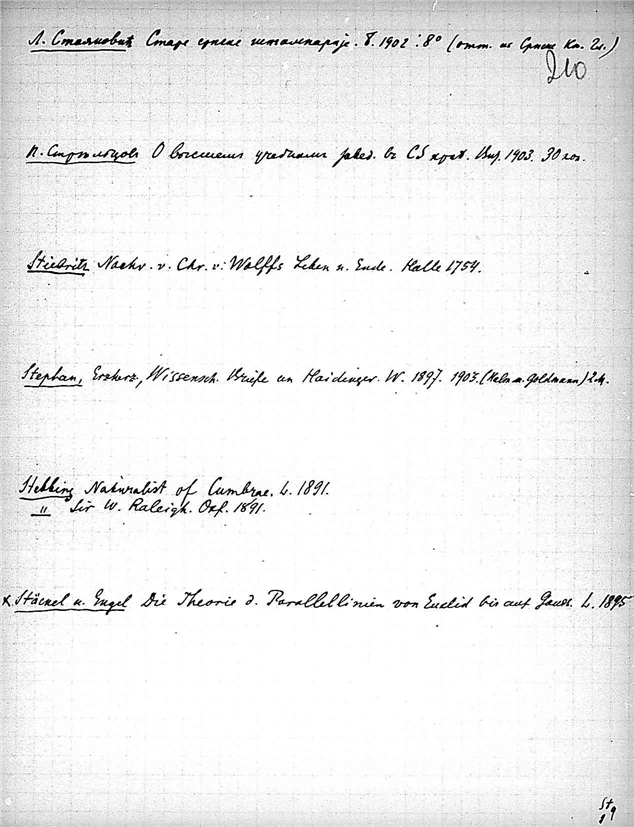 Л. Стаяновић Старе српске штампарије. Б. 1902. 8° (отт. из Српски Кн. Гл.)
210
П. Стрѣльцовъ О высшемъ учебномъ завед. въ Сѣ 1903. 30 коп.
Stiebritz Nachr. v. Chr. v. Wolffs Leben u. Ende. Halle 1754.
Stephan, Erzherz, Wissensch. Briefe an Haidinger. W. 1897. 1903. (Keln u. Goldmann) 2 M.
Stebbing Naturalist of Cumbrae. L. 1891.
" Sir W. Raleigh. Oxf. 1891.
x Stäckel u. Engel Die Theorie d. Parallellinien von Euclid bis auf Gauss. L. 1895
St
19